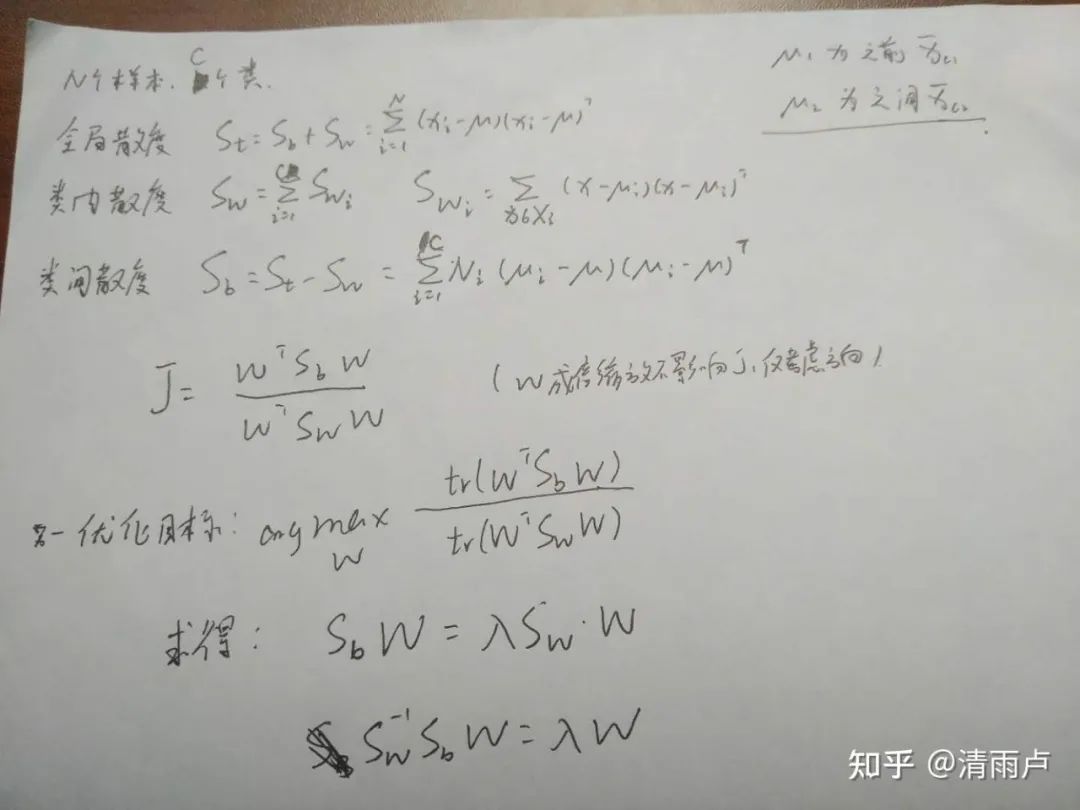 N个样本, C个类.
μ₁ 为之前 x̄c₁
μ₂ 为之间 x̄c₂
全局散度 St = Sb + Sw = ∑_{i=1}^{N} (xi-μ)(xi-μ)ᵀ
类内散度 Sw = ∑_{i=1}^{C} Swi Swi = ∑_{x∈Xi} (x-μi)(x-μi)ᵀ
类间散度 Sb = St - Sw = ∑_{i=1}^{C} Ni (μi-μ)(μi-μ)ᵀ
J = WᵀSbW / WᵀSwW (W成倍缩放不影响J, 仅考虑方向)
优化目标: arg max_W tr(WᵀSbW) / tr(WᵀSwW)
求得: SbW = λSw·W
Sw⁻¹SbW = λW
知乎 @清雨卢